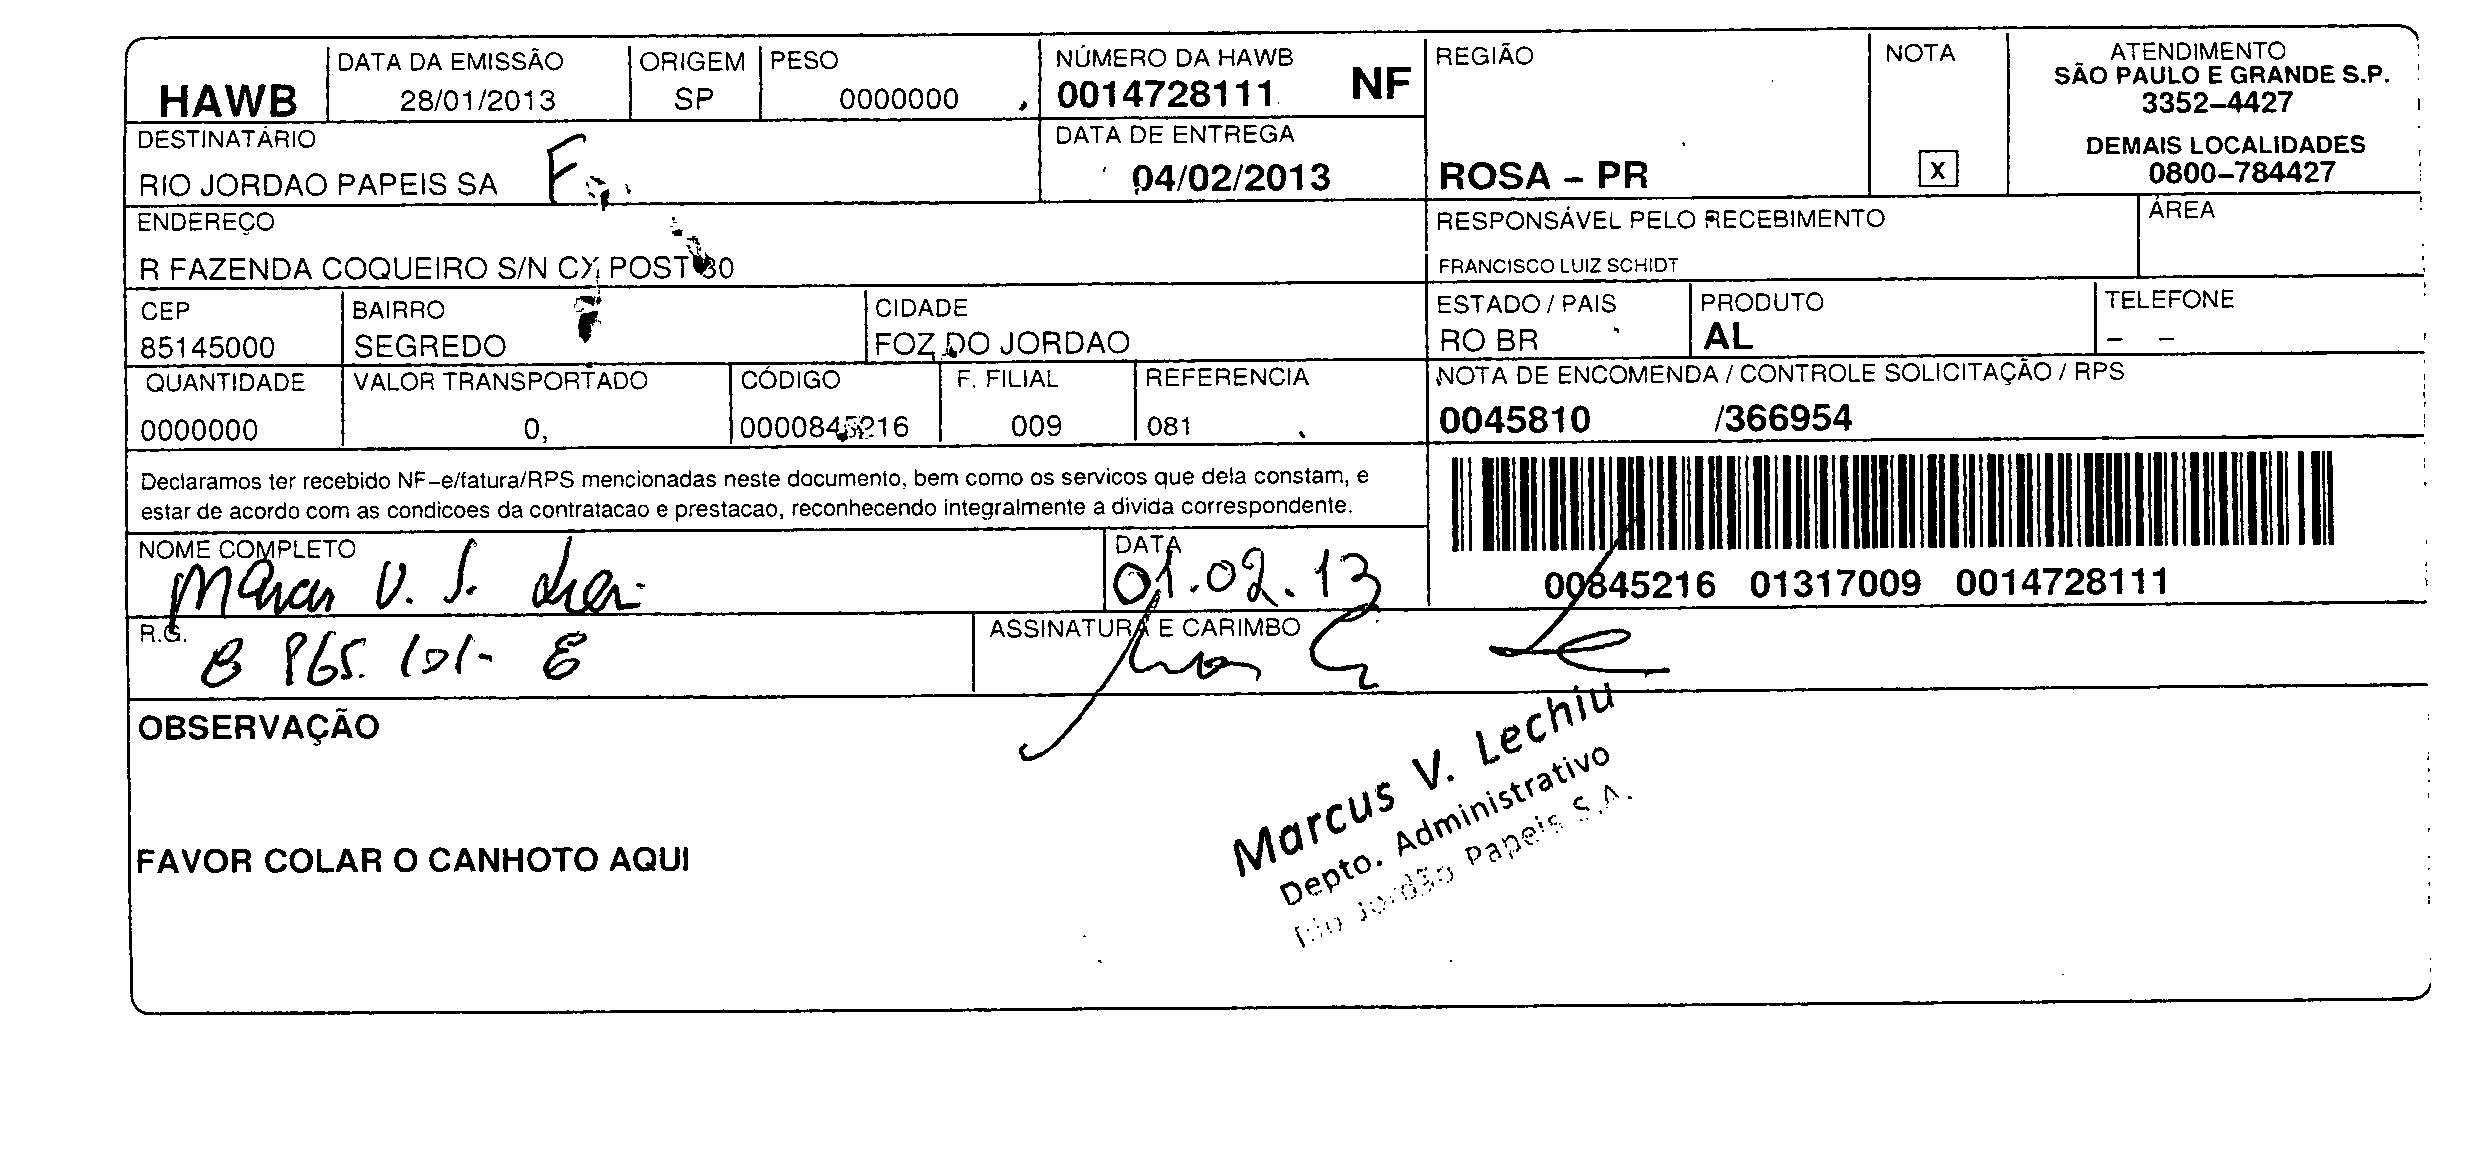 HAWB
DATA DA EMISSÃO
28/01/2013
ORIGEM
SP
PESO
0000000
NÚMERO DA HAWB
0014728111 NF
DATA DE ENTREGA
04/02/2013
REGIÃO
ROSA – PR
NOTA
X
ATENDIMENTO
SÃO PAULO E GRANDE S.P.
3352–4427
DEMAIS LOCALIDADES
0800–784427
DESTINATÁRIO
RIO JORDAO PAPEIS SA
ENDEREÇO
R FAZENDA COQUEIRO S/N CX POST
RESPONSÁVEL PELO RECEBIMENTO
FRANCISCO LUIZ SCHIDT
ÁREA
CEP
85145000
BAIRRO
SEGREDO
CIDADE
FOZ DO JORDAO
ESTADO / PAIS
RO BR
PRODUTO
AL
TELEFONE
– –
QUANTIDADE
0000000
VALOR TRANSPORTADO
0,
CÓDIGO
0000845216
F. FILIAL
009
REFERENCIA
081
NOTA DE ENCOMENDA / CONTROLE SOLICITAÇÃO / RPS
0045810 /366954
Declaramos ter recebido NF–e/fatura/RPS mencionadas neste documento, bem como os servicos que dela constam, e
estar de acordo com as condicoes da contratacao e prestacao, reconhecendo integralmente a divida correspondente.
00845216 01317009 0014728111
NOME COMPLETO
Marcus V. S.
DATA
01.02.13
R.G.
ASSINATURA E CARIMBO
OBSERVAÇÃO
Marcus V. Lechiu
Depto. Administrativo
Rio Jordão Papeis S.A.
FAVOR COLAR O CANHOTO AQUI